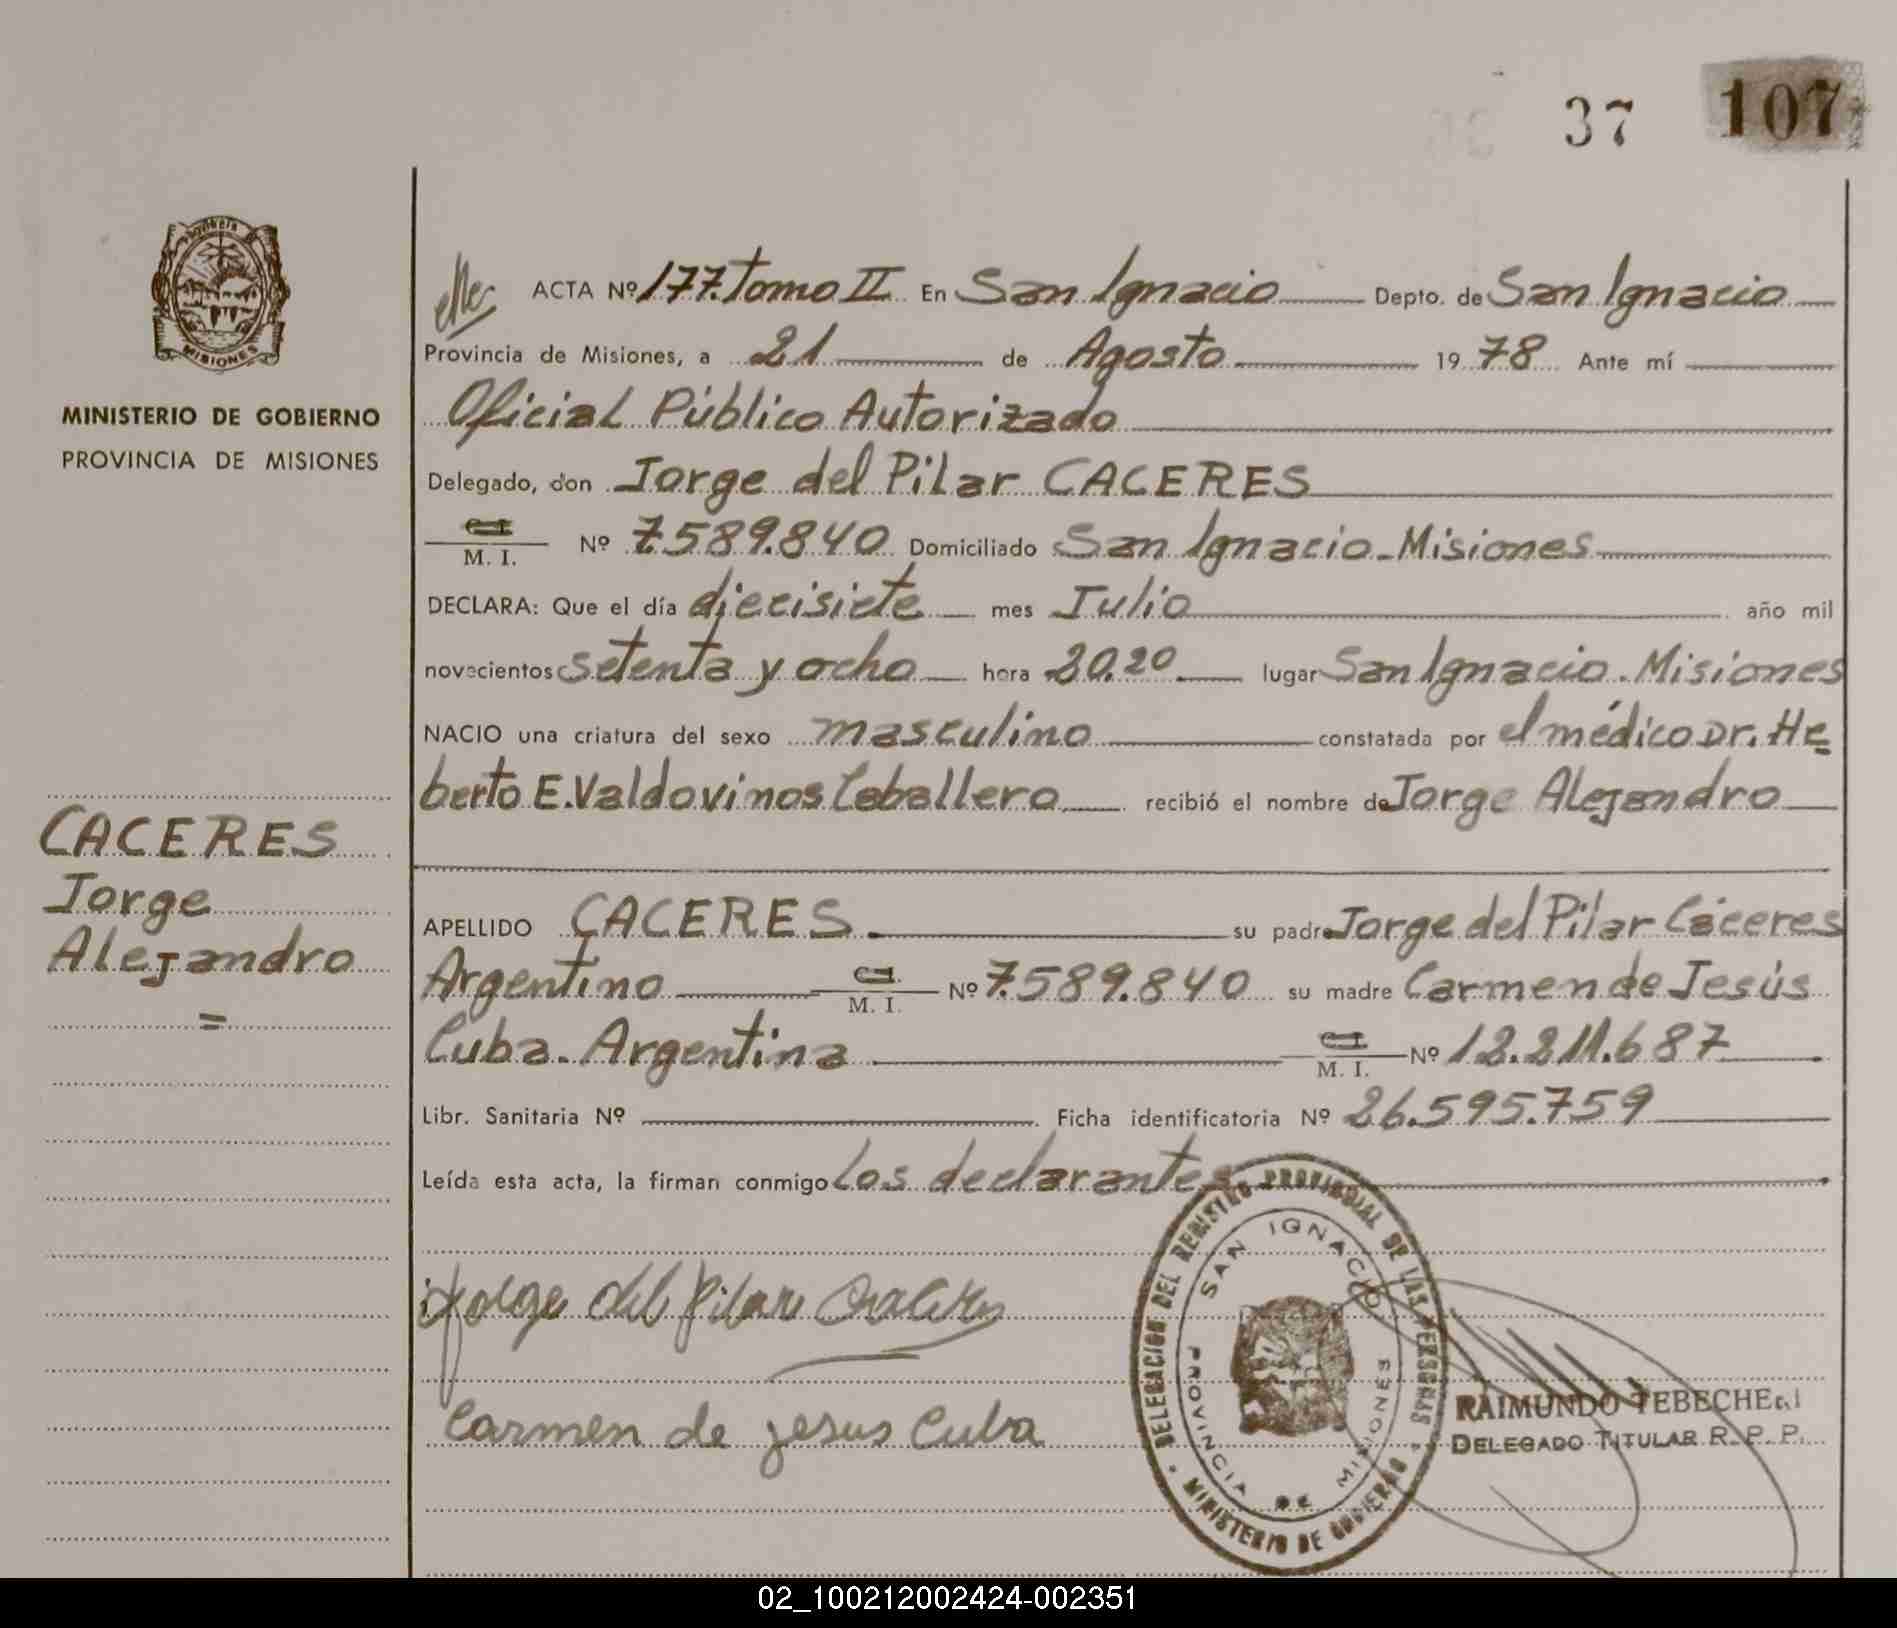 37 107
MISIONES
MINISTERIO DE GOBIERNO
PROVINCIA DE MISIONES
CACERES
Jorge
Alejandro
=
ACTA Nº 177. Tomo II En San Ignacio Depto. de San Ignacio
Provincia de Misiones, a 21 de Agosto 19 78 Ante mí
Oficial Público Autorizado
Delegado, don Jorge del Pilar CACERES
C. I.
M. I. Nº 7.589.840 Domiciliado San Ignacio-Misiones
DECLARA: Que el día diecisiete mes Julio año mil
novecientos setenta y ocho hora 20.20 lugar San Ignacio. Misiones
NACIO una criatura del sexo masculino constatada por el médico Dr. He
berto E. Valdovinos Caballero recibió el nombre de Jorge Alejandro
APELLIDO CACERES su padre Jorge del Pilar Cáceres
Argentino C. I. M. I. Nº 7.589.840 su madre Carmen de Jesús
Cuba. Argentina C. I. M. I. Nº 12.211.687
Libr. Sanitaria Nº Ficha identificatoria Nº 26.595.759
Leída esta acta, la firman conmigo los declarantes
Jorge del Pilar Caceres
Carmen de jesus Cuba
DELEGACION DEL REGISTRO PROVINCIAL DE LAS PERSONAS
MINISTERIO DE GOBIERNO
SAN IGNACIO
PROVINCIA DE MISIONES
RAIMUNDO TEBECHERI
DELEGADO TITULAR R. P. P.
02_100212002424-002351